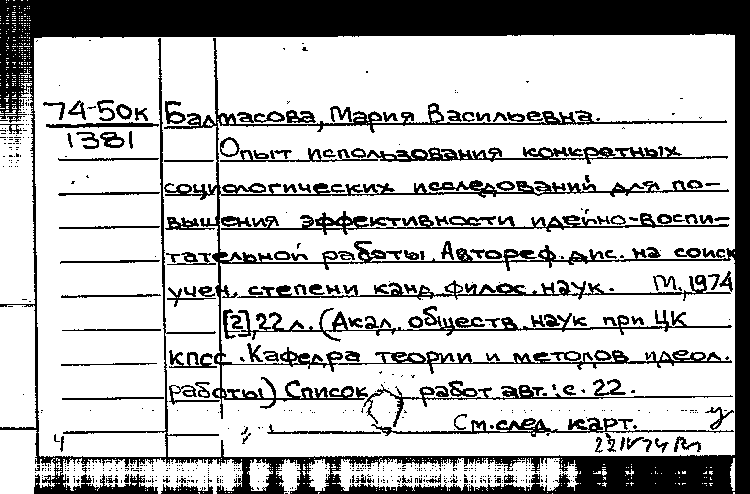 74-50к Балмасова, Мария Васильевна.
1381
Опыт использования конкретных
социологических исследований для по-
вышения эффективности идейно-воспи-
тательной работы. Автореф. дис. на соиск
учен. степени канд филос. наук. М., 1974
[2], 22 л. (Акад. обществ. наук при ЦК
КПСС. Кафедра теории и методов идеол.
работы) Список работ авт.: с. 22.
См. след. карт.
4